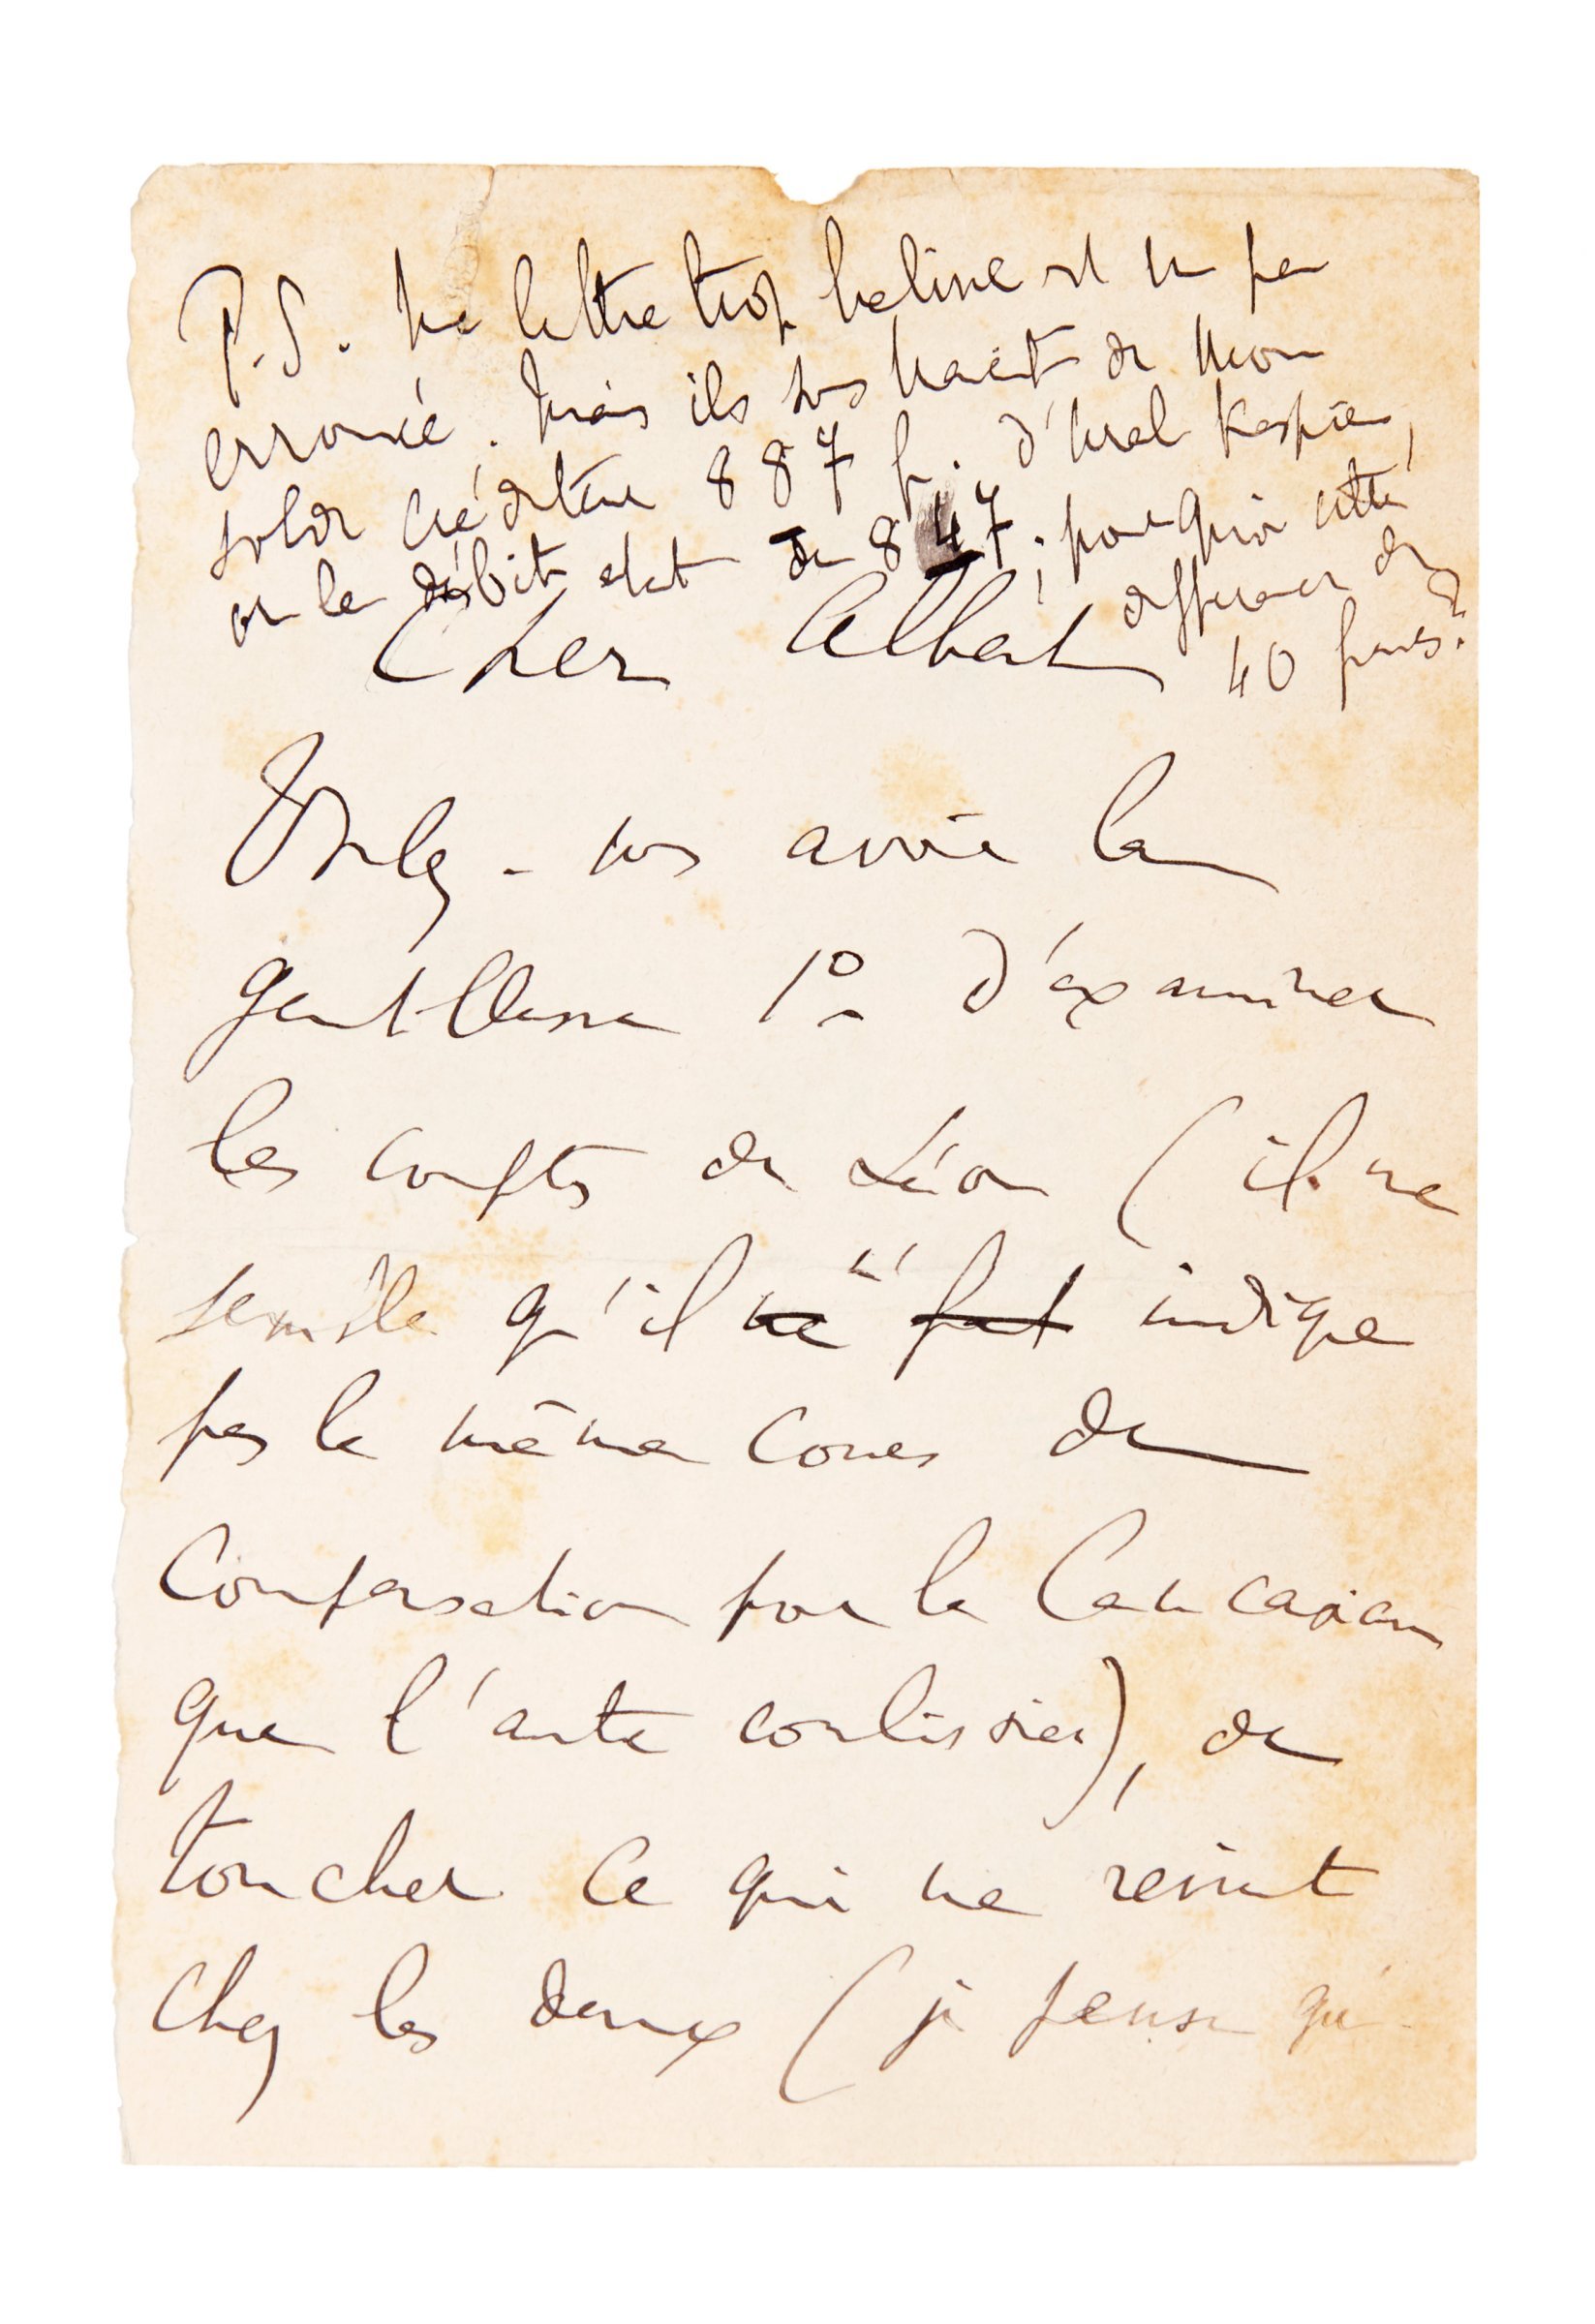 P.S. Ma lettre trop hâtive est un peu
erronée. Mais ils vous parlaient de mon
solde créditeur 887 f. d'Oural Kaspien,
or le débit était de 847, pourquoi cette
différence de
40 francs?
Cher Albert
Voulez-vous avoir la
gentillesse 1º d'examiner
les comptes de Léon (il me
semble qu'il ne n' fait indique
pas le même cours de
Compensation pour la Caucasian
que l'autre coulissier), de
toucher ce qui me revient
chez les deux (je pense que